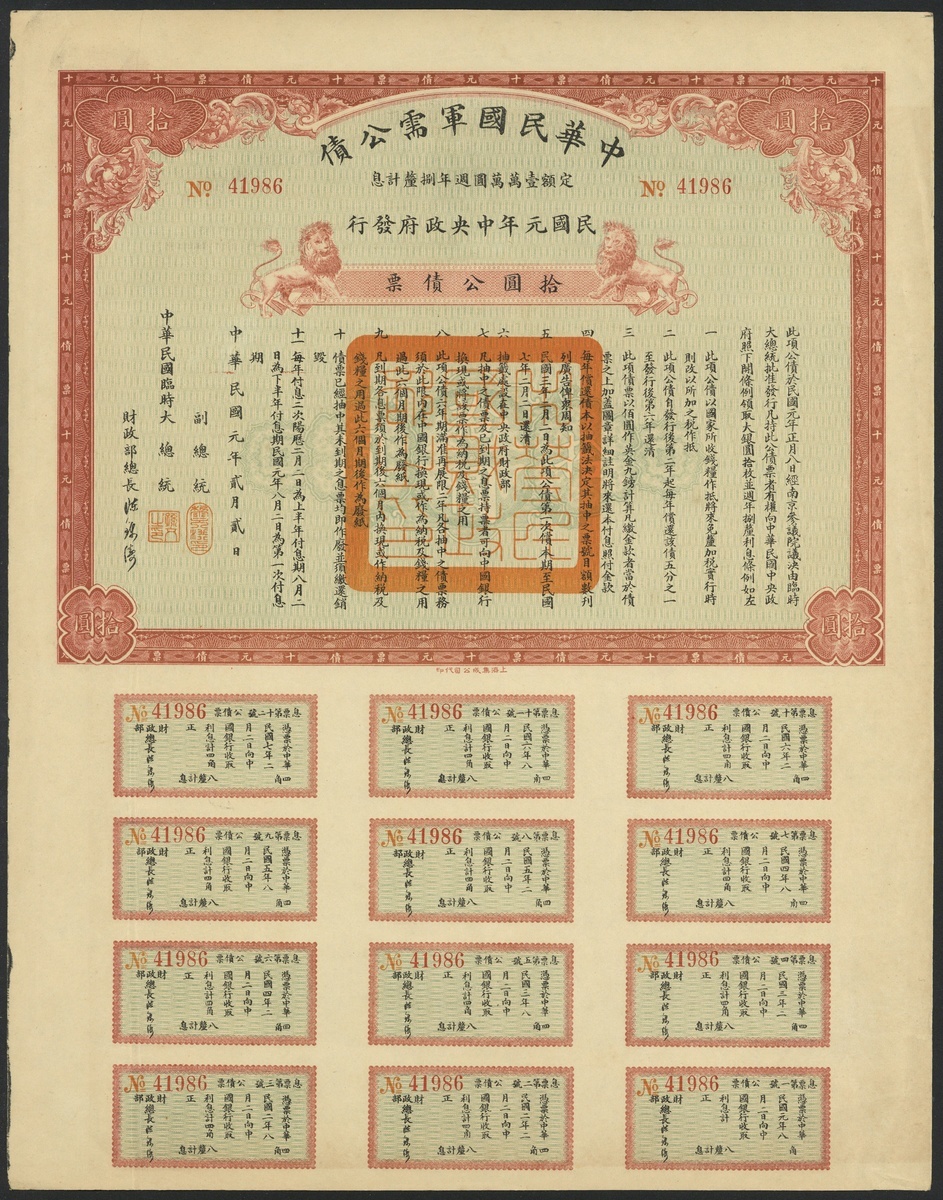 拾圓
拾圓
中華民國軍需公債
定額壹萬萬圓週年捌釐計息
No 41986
No 41986
民國元年中央政府發行
拾圓公債票
此項公債於民國元年正月八日經南京參議院議決由臨時
大總統批准發行凡持此公債票者有權向中華民國中央政
府照下開條例領取大銀圓拾枚並週年捌釐利息條例如左
一 此項公債以國家所收錢糧作抵將來免釐加税實行時
則改以所加之税作抵
二 此項公債自發行後第二年起每年償還該債五分之一
至發行後第六年還清
三 此項債票以佰圓作英金九鎊計算凡繳金款者當於債
票之上加蓋圖章詳細註明將來還本付息照付金款
四 每年償還債本以抽籤法決定其抽中之票號目額數刊
列廣告俾衆周知
五 民國三年二月二日為此項公債第一次償本期至民國
七年二月二日還清
六 抽籤處設在中央政府財政部
七 凡抽中之債票及已到期之息票持票者可向中國銀行
換現或將該票作為納税及錢糧之用
八 此項公債六年期滿准再展限二年凡各抽中之債票務
須於此限內在中國銀行換現或作為納税及錢糧之用
過此六個月期後作為廢紙
九 凡到期各息票須於到期後六個月內換現或作納税及
錢糧之用過此六個月期後作為廢紙
十 債票已經抽中其未到期之息票均即作廢並須繳還銷
毀
十一 每年付息二次陽曆二月二日為上半年付息期八月二
日為下半年付息期民國元年八月二日為第一次付息
期
中華民國元年貳月貳日
副總統
中華民國臨時大總統
財政部總長陳錦濤
拾圓
拾圓
上海集成公司代印
息票第十號 公債票 No 41986
憑票於中華
民國六年二
月二日向中
國銀行收取
利息計四角
正
財政部總長陳錦濤
四角 八釐計息
息票第十一號 公債票 No 41986
憑票於中華
民國六年八
月二日向中
國銀行收取
利息計四角
正
財政部總長陳錦濤
四角 八釐計息
息票第十二號 公債票 No 41986
憑票於中華
民國七年二
月二日向中
國銀行收取
利息計四角
正
財政部總長陳錦濤
四角 八釐計息
息票第七號 公債票 No 41986
憑票於中華
民國四年八
月二日向中
國銀行收取
利息計四角
正
財政部總長陳錦濤
四角 八釐計息
息票第八號 公債票 No 41986
憑票於中華
民國五年二
月二日向中
國銀行收取
利息計四角
正
財政部總長陳錦濤
四角 八釐計息
息票第九號 公債票 No 41986
憑票於中華
民國五年八
月二日向中
國銀行收取
利息計四角
正
財政部總長陳錦濤
四角 八釐計息
息票第四號 公債票 No 41986
憑票於中華
民國三年二
月二日向中
國銀行收取
利息計四角
正
財政部總長陳錦濤
四角 八釐計息
息票第五號 公債票 No 41986
憑票於中華
民國三年八
月二日向中
國銀行收取
利息計四角
正
財政部總長陳錦濤
四角 八釐計息
息票第六號 公債票 No 41986
憑票於中華
民國四年二
月二日向中
國銀行收取
利息計四角
正
財政部總長陳錦濤
四角 八釐計息
息票第一號 公債票 No 41986
憑票於中華
民國元年八
月二日向中
國銀行收取
利息計四角
正
財政部總長陳錦濤
四角 八釐計息
息票第二號 公債票 No 41986
憑票於中華
民國二年二
月二日向中
國銀行收取
利息計四角
正
財政部總長陳錦濤
四角 八釐計息
息票第三號 公債票 No 41986
憑票於中華
民國二年八
月二日向中
國銀行收取
利息計四角
正
財政部總長陳錦濤
四角 八釐計息